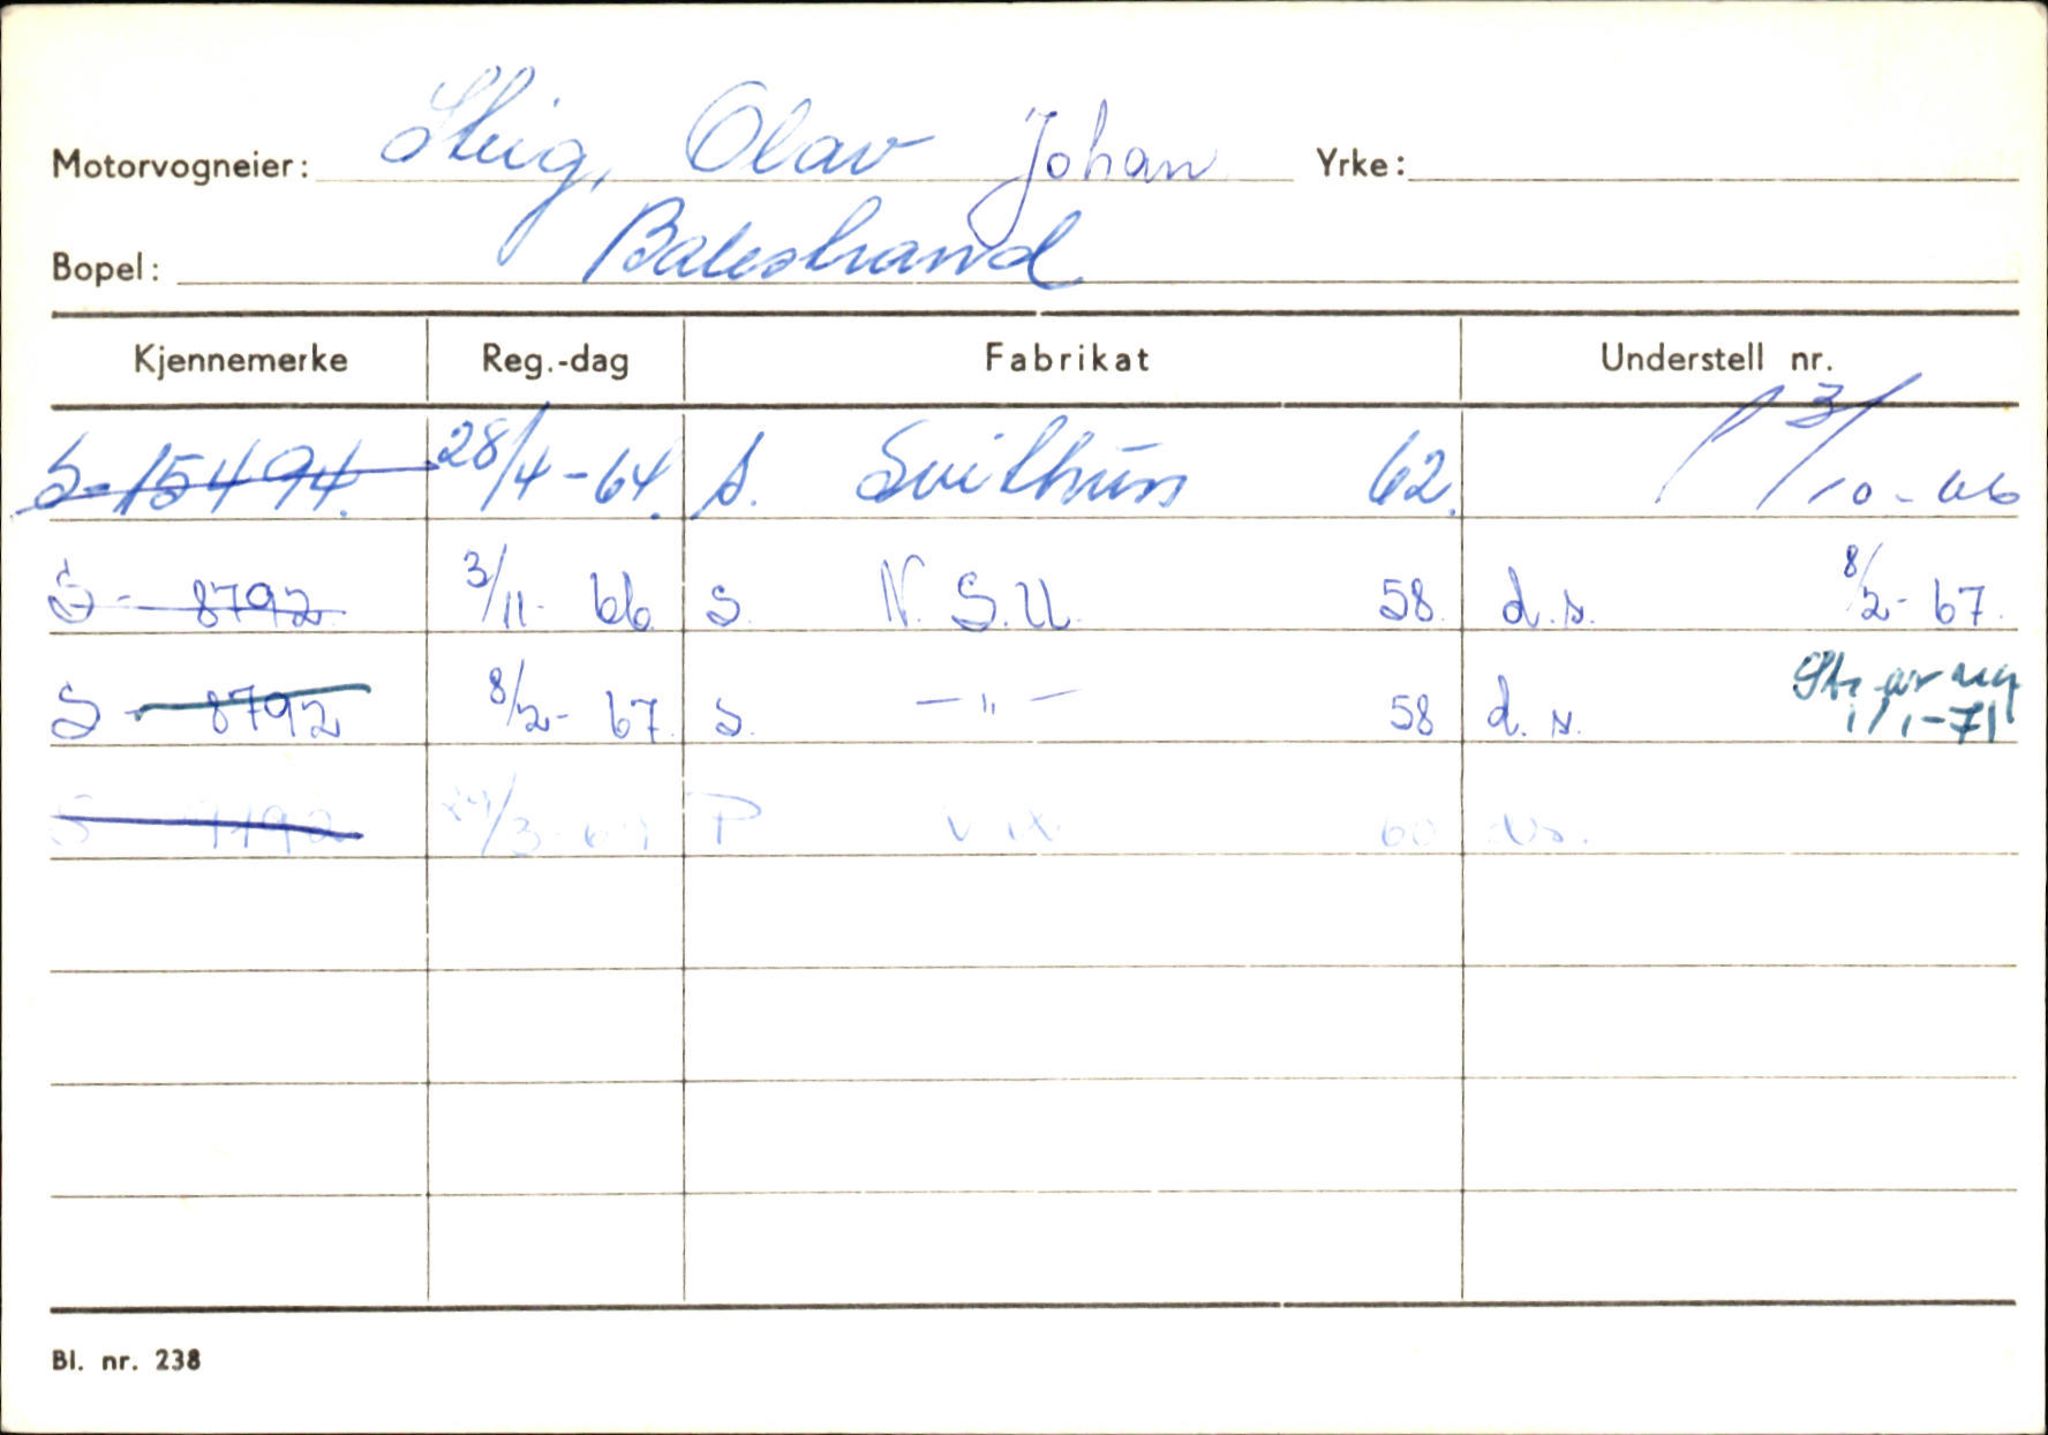 Motorvogneier: Steig, Olav Johan Yrke:
Bopel: Balestrand
Kjennemerke Reg.-dag Fabrikat Understell nr.
S-15494. 28/4-64. s. Svithun 62. 3/10-66
S- 8792 3/11- 66. s. N.S.U. 58. d.s. 8/2- 67.
S- 8792 8/2- 67. s. -"- 58 d.s. Str. av reg 1/1-71
S /3- P 60 ds.
Bl. nr. 238